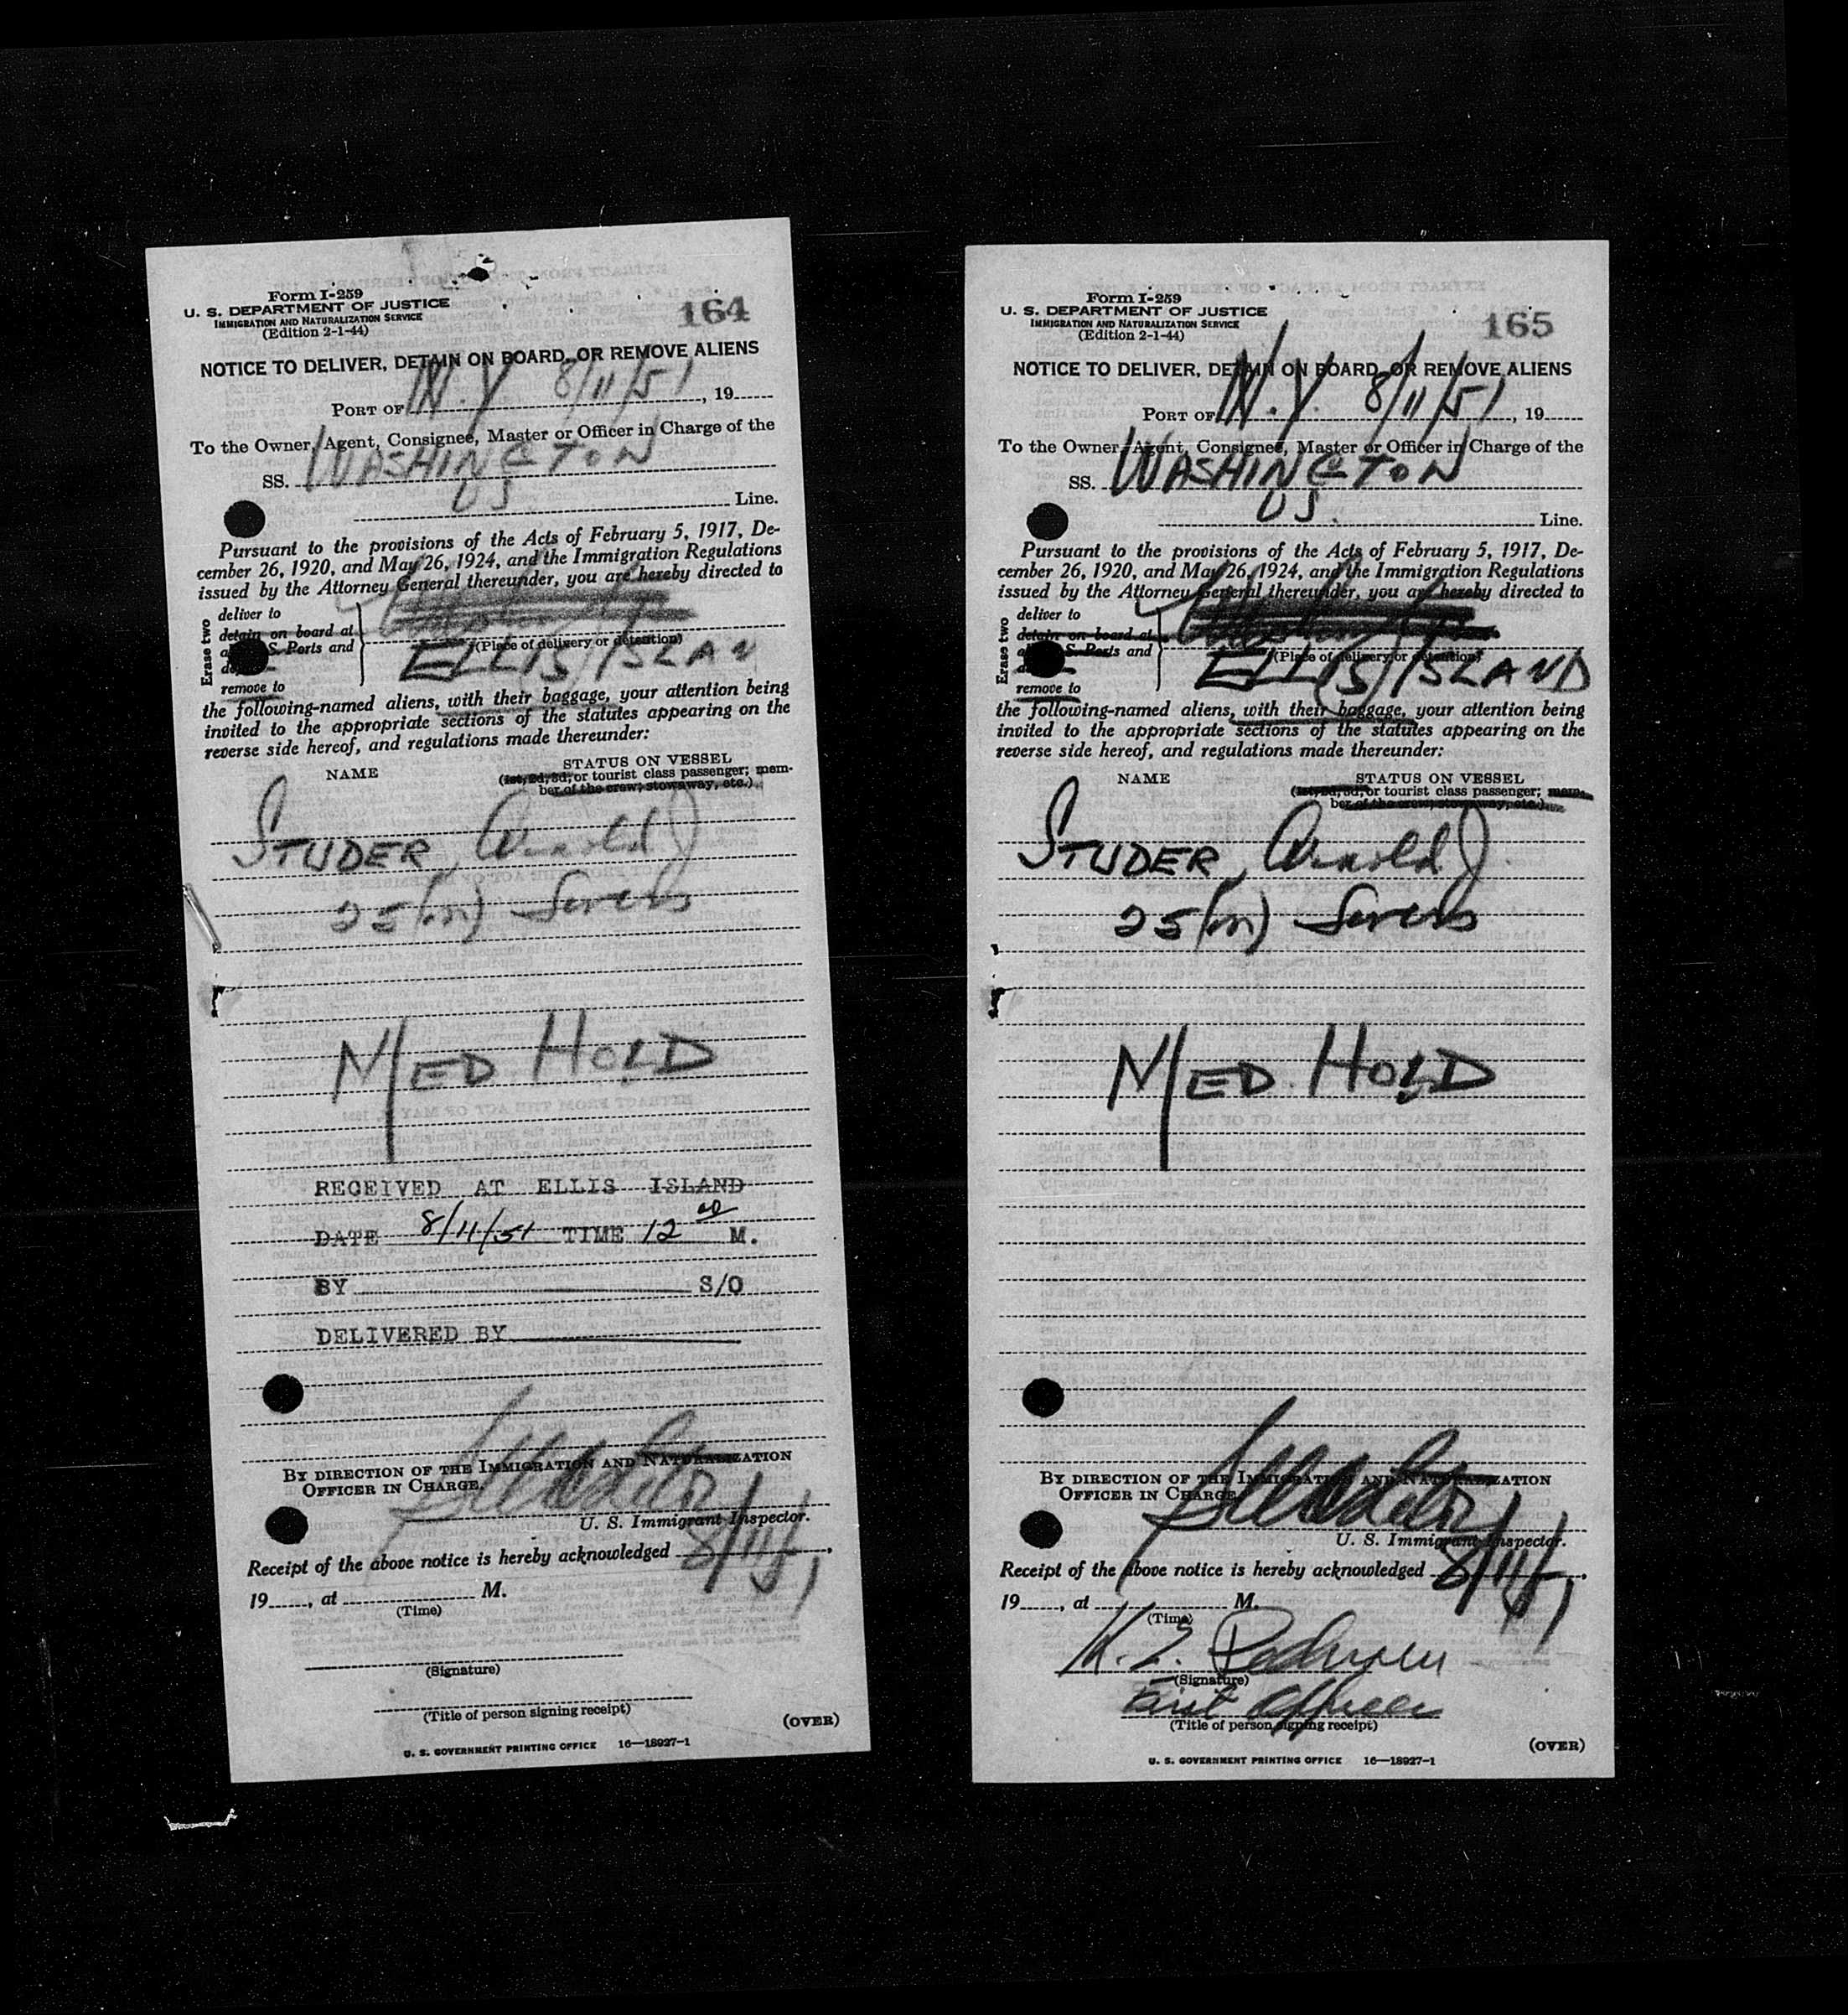 Form I-259
U. S. DEPARTMENT OF JUSTICE
IMMIGRATION AND NATURALIZATION SERVICE
(Edition 2-1-44)
164
NOTICE TO DELIVER, DETAIN ON BOARD, OR REMOVE ALIENS
PORT OF N.Y 8/11/51, 19
To the Owner, Agent, Consignee, Master or Officer in Charge of the
SS. WASHINGTON
US Line.
Pursuant to the provisions of the Acts of February 5, 1917, De-
cember 26, 1920, and May 26, 1924, and the Immigration Regulations
issued by the Attorney General thereunder, you are hereby directed to
Erase two
deliver to
detain on board at
S. Ports and
remove to
(Place of delivery or detention)
ELLIS ISLAN
the following-named aliens, with their baggage, your attention being
invited to the appropriate sections of the statutes appearing on the
reverse side hereof, and regulations made thereunder:
NAME
STATUS ON VESSEL
(1st, 2d, 3d, or tourist class passenger; mem-
ber of the crew; stowaway, etc.)
STUDER, Arnold J
25 (m)
MED HOLD
RECEIVED AT ELLIS ISLAND
DATE 8/11/51 TIME 12 00 M.
BY S/O
DELIVERED BY
BY DIRECTION OF THE IMMIGRATION AND NATURALIZATION
OFFICER IN CHARGE.
U. S. Immigrant Inspector.
Receipt of the above notice is hereby acknowledged 8/11/51,
19, at M.
(Time)
(Signature)
(Title of person signing receipt)
(OVER)
U. S. GOVERNMENT PRINTING OFFICE 16—18927-1
Form I-259
U. S. DEPARTMENT OF JUSTICE
IMMIGRATION AND NATURALIZATION SERVICE
(Edition 2-1-44)
165
NOTICE TO DELIVER, DETAIN ON BOARD, OR REMOVE ALIENS
PORT OF N.Y. 8/11/51, 19
To the Owner, Agent, Consignee, Master or Officer in Charge of the
SS. WASHINGTON
US. Line.
Pursuant to the provisions of the Acts of February 5, 1917, De-
cember 26, 1920, and May 26, 1924, and the Immigration Regulations
issued by the Attorney General thereunder, you are hereby directed to
Erase two
deliver to
detain on board at
S. Ports and
remove to
(Place of delivery or detention)
ELLIS ISLAND
the following-named aliens, with their baggage, your attention being
invited to the appropriate sections of the statutes appearing on the
reverse side hereof, and regulations made thereunder:
NAME
STATUS ON VESSEL
(1st, 2d, 3d, or tourist class passenger; mem-
ber of the crew; stowaway, etc.)
STUDER, Arnold J.
25 (m)
MED. HOLD
BY DIRECTION OF THE IMMIGRATION AND NATURALIZATION
OFFICER IN CHARGE.
U. S. Immigrant Inspector.
Receipt of the above notice is hereby acknowledged 8/11/51,
19, at M.
(Time)
(Signature)
First Officer
(Title of person signing receipt)
(OVER)
U. S. GOVERNMENT PRINTING OFFICE 16—18927-1